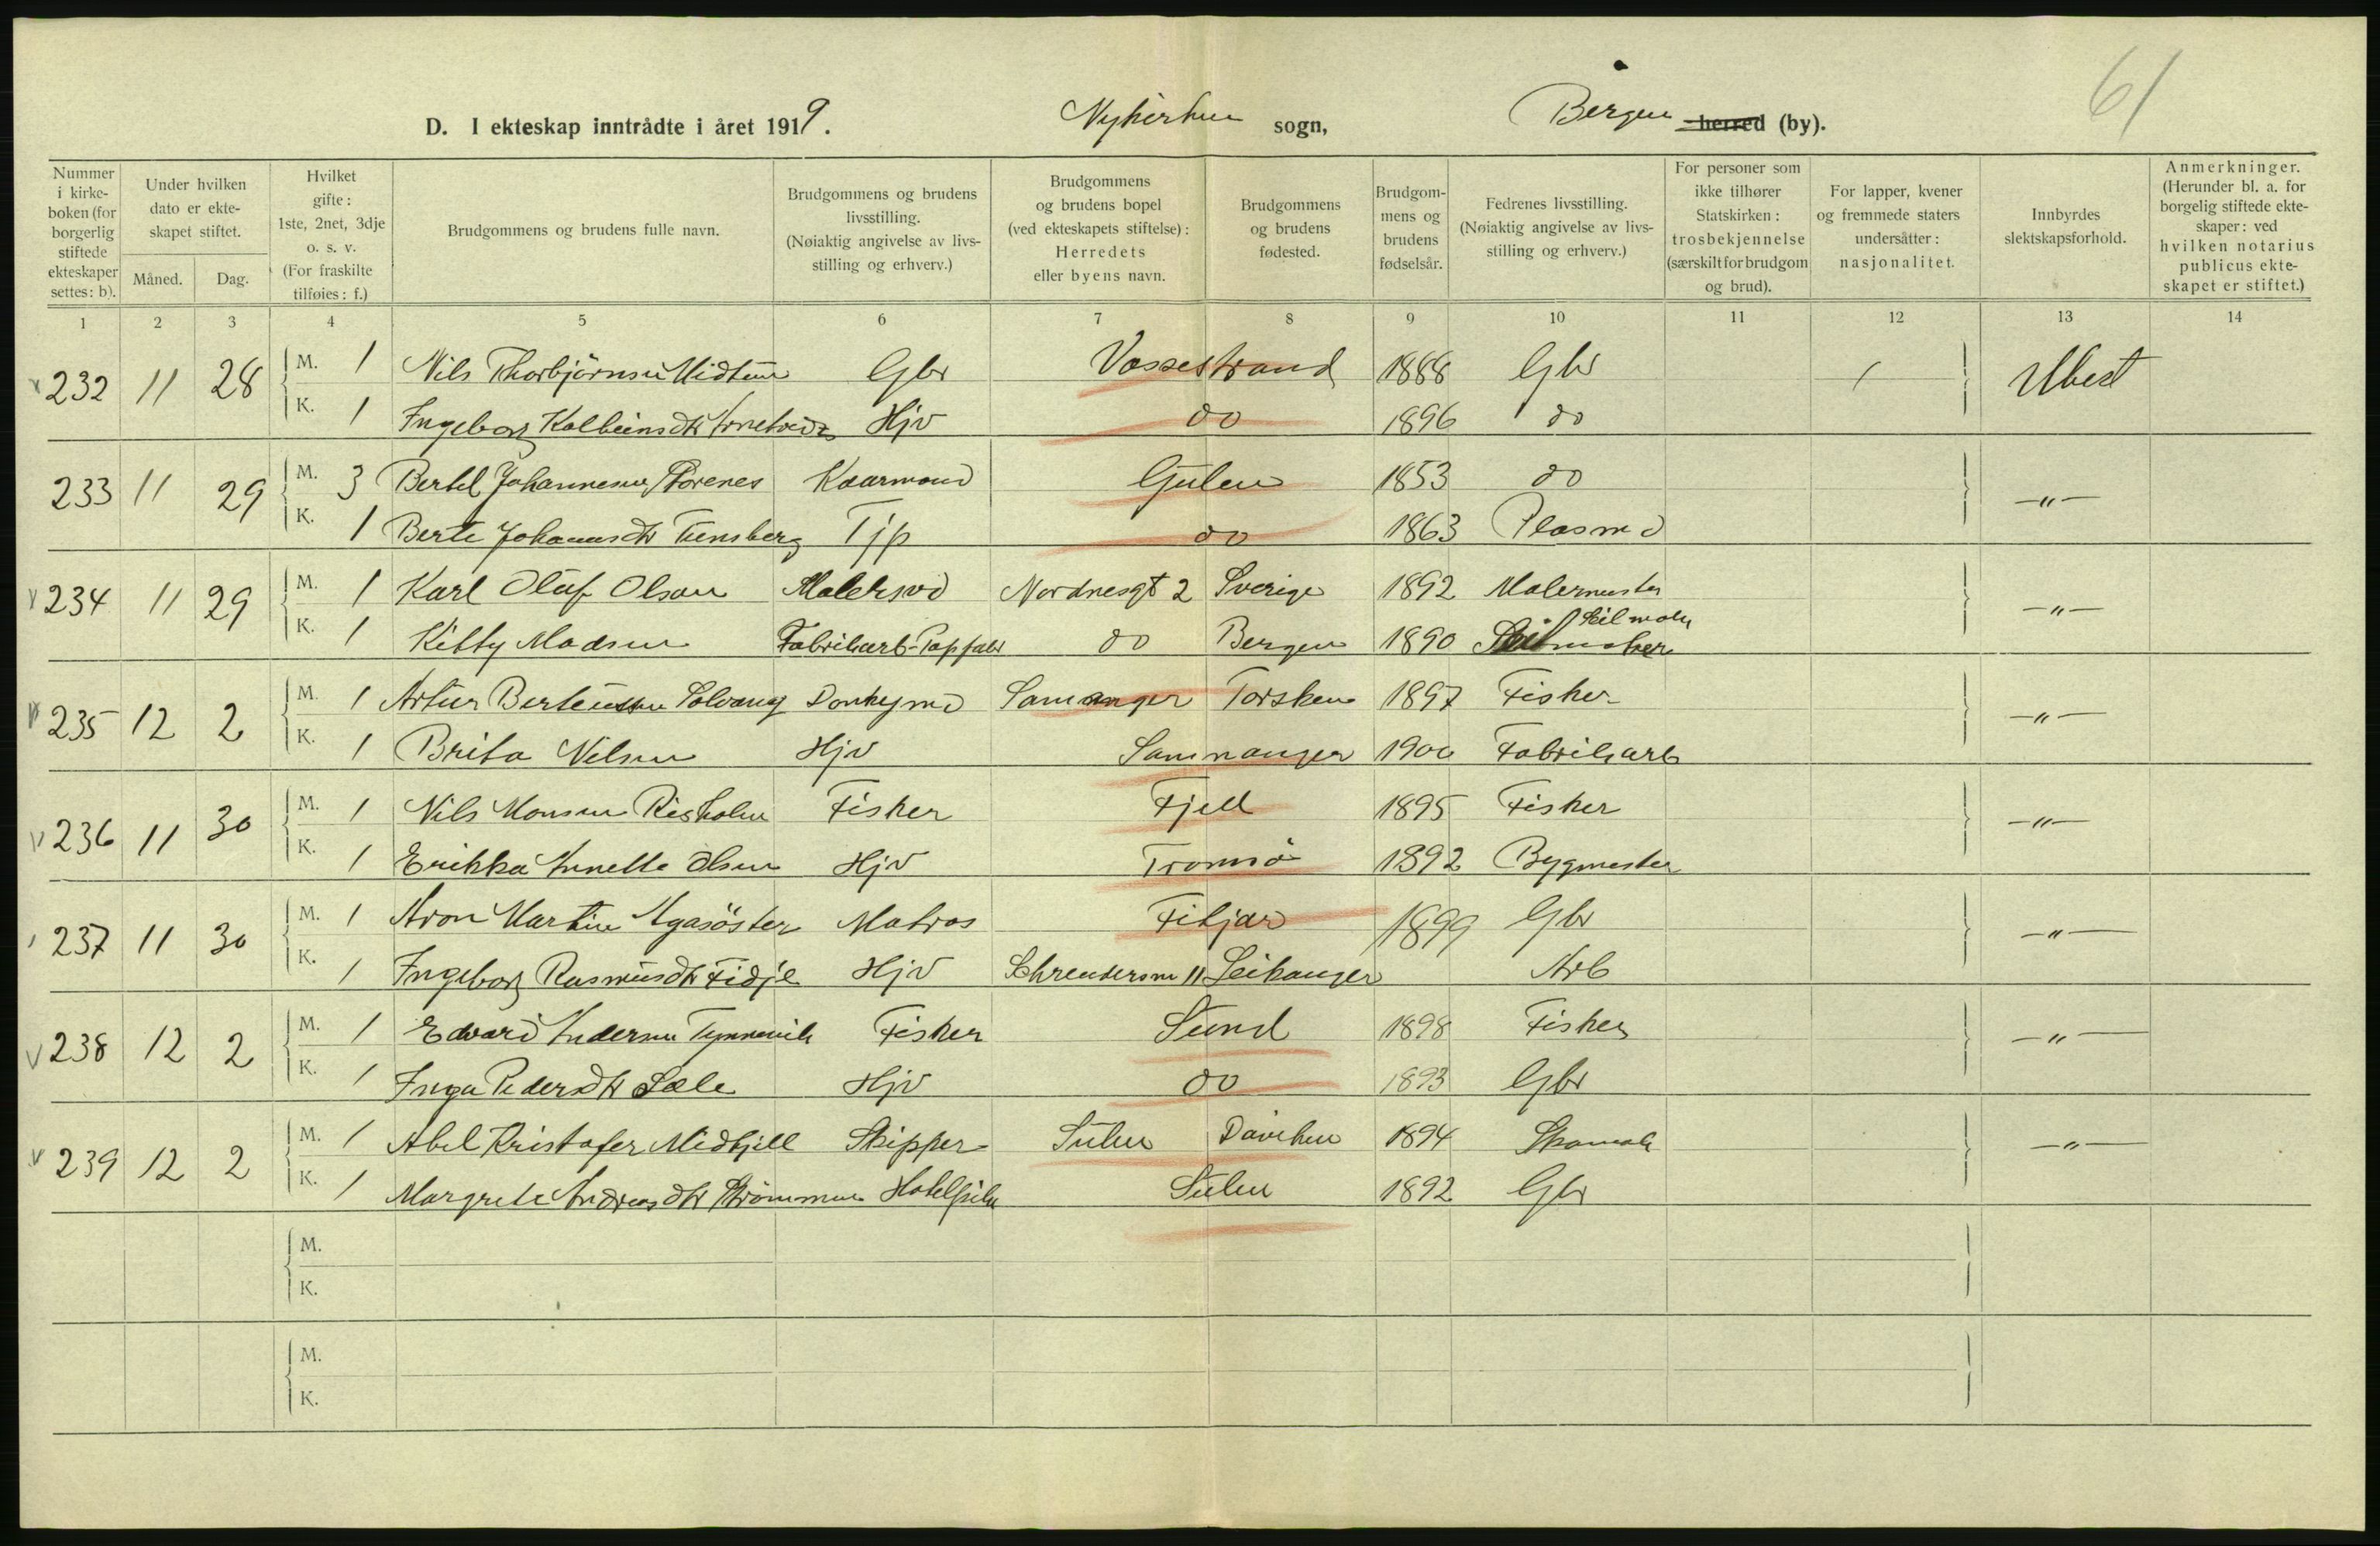 61
D. I ekteskap inntrådte i året 1919. Nykirken sogn, Bergen herred (by).
Nummer i kirke-boken (for borgerlig stiftede ekteskaper settes: b).
Under hvilken dato er ekte-skapet stiftet.
Måned. Dag.
Hvilket gifte: 1ste, 2net, 3dje o. s. v. (For fraskilte tilføies: f.)
Brudgommens og brudens fulle navn.
Brudgommens og brudens livsstilling. (Nøiaktig angivelse av livs-stilling og erhverv.)
Brudgommens og brudens bopel (ved ekteskapets stiftelse): Herredets eller byens navn.
Brudgommens og brudens fødested.
Brudgom-mens og brudens fødselsår.
Fedrenes livsstilling. (Nøiaktig angivelse av livs-stilling og erhverv.)
For personer som ikke tilhører Statskirken: trosbekjennelse (særskilt for brudgom og brud).
For lapper, kvener og fremmede staters undersåtter: nasjonalitet.
Innbyrdes slektskapsforhold.
Anmerkninger. (Herunder bl. a. for borgelig stiftede ekte-skaper: ved hvilken notarius publicus ekte-skapet er stiftet.)
1 2 3 4 5 6 7 8 9 10 11 12 13 14
232 11 28 M. 1 Nils Thorbjörnsen Midtun Gbr Vossestrand 1888 Gbr / Ubesl
K. 1 Ingeborg Kolbeinsdtr Hjv do 1896 do
233 11 29 M. 3 Bertel Johannesen Kaarmand Gulen 1853 do —"—
K. 1 Berte Johannsdtr Tunsberg Tjp do 1863 Plasmd
234 11 29 M. 1 Karl Oluf Olsen Malersvd Nordnesgt 2 Sverige 1892 Malermester —"—
K. 1 Kitty Madsen Fabrikarb-Papfabr do Bergen 1890 Seilmaker Seilmaker
235 12 2 M. 1 Artur Berteussen Solvang Donkeymd Samnanger Torsken 1897 Fisker —"—
K. 1 Brita Nilsen Hjv Samnanger 1900 Fabrikarb
236 11 30 M. 1 Nils Monsen Risholm Fisker Fjell 1895 Fisker —"—
K. 1 Erikka Annette Olsen Hjv Tromsö 1892 Bygmester
237 11 30 M. 1 Aron Martin Agasöster Matros Fitjar 1899 Gbr —"—
K. 1 Ingeborg Rasmusdtr Fidje Hjv 11 Leikanger Arb
238 12 2 M. 1 Edvard Andersen Fisker Sund 1898 Fisker —"—
K. 1 Inga Pedersdtr Sæle Hjv do 1893 Gbr
239 12 2 M. 1 Abel Kristofer Midtfjell Skipper Sulen Daviken 1894 Skomak —"—
K. 1 Margrete Andreasdtr Strömmen Hotelpike Sulen 1892 Gbr
M.
K.
M.
K.